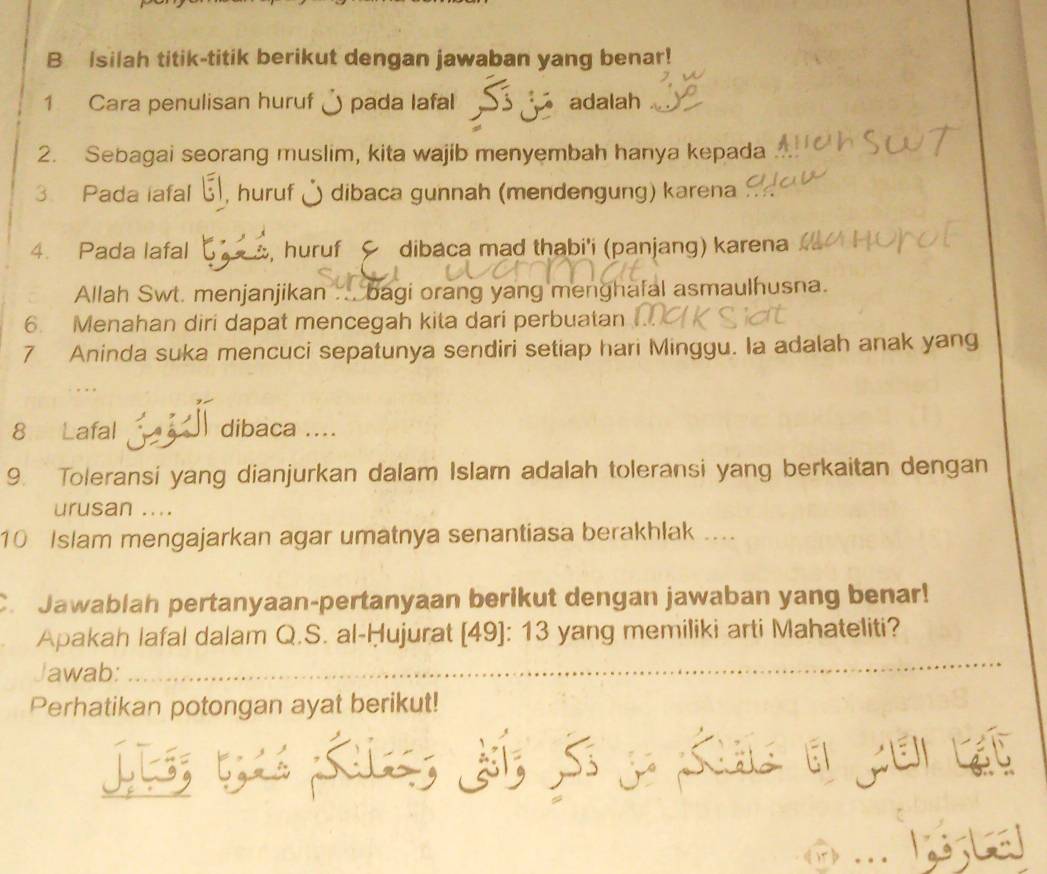 B Isilah titik-titik berikut dengan jawaban yang benar!
1 Cara penulisan huruf نْ pada lafal مِنْ ذَكَرٍ adalah ....
2. Sebagai seorang muslim, kita wajib menyembah hanya kepada .... Allah SWT
3 Pada lafal إِنَّا, huruf نْ dibaca gunnah (mendengung) karena ....
4. Pada lafal شُعُوْبًا, huruf ع dibaca mad thabi'i (panjang) karena .... HUrUf
Allah Swt. menjanjikan .... bagi orang yang menghafal asmaulhusna.
6. Menahan diri dapat mencegah kita dari perbuatan .... makSiat
7 Aninda suka mencuci sepatunya sendiri setiap hari Minggu. Ia adalah anak yang
....
8 Lafal الْمُؤْمِنُ dibaca ....
9. Toleransi yang dianjurkan dalam Islam adalah toleransi yang berkaitan dengan
urusan ....
10 Islam mengajarkan agar umatnya senantiasa berakhlak ....
C. Jawablah pertanyaan-pertanyaan berikut dengan jawaban yang benar!
Apakah lafal dalam Q.S. al-Ḥujurat [49]: 13 yang memiliki arti Mahateliti?
Jawab:
Perhatikan potongan ayat berikut!
يٰٓاَيُّهَا النَّاسُ اِنَّا خَلَقْنٰكُمْ مِّنْ ذَكَرٍ وَّاُنْثٰى وَجَعَلْنٰكُمْ شُعُوْبًا وَّقَبَاۤىِٕلَ
لِتَعَارَفُوْا ... ﴿١٣﴾